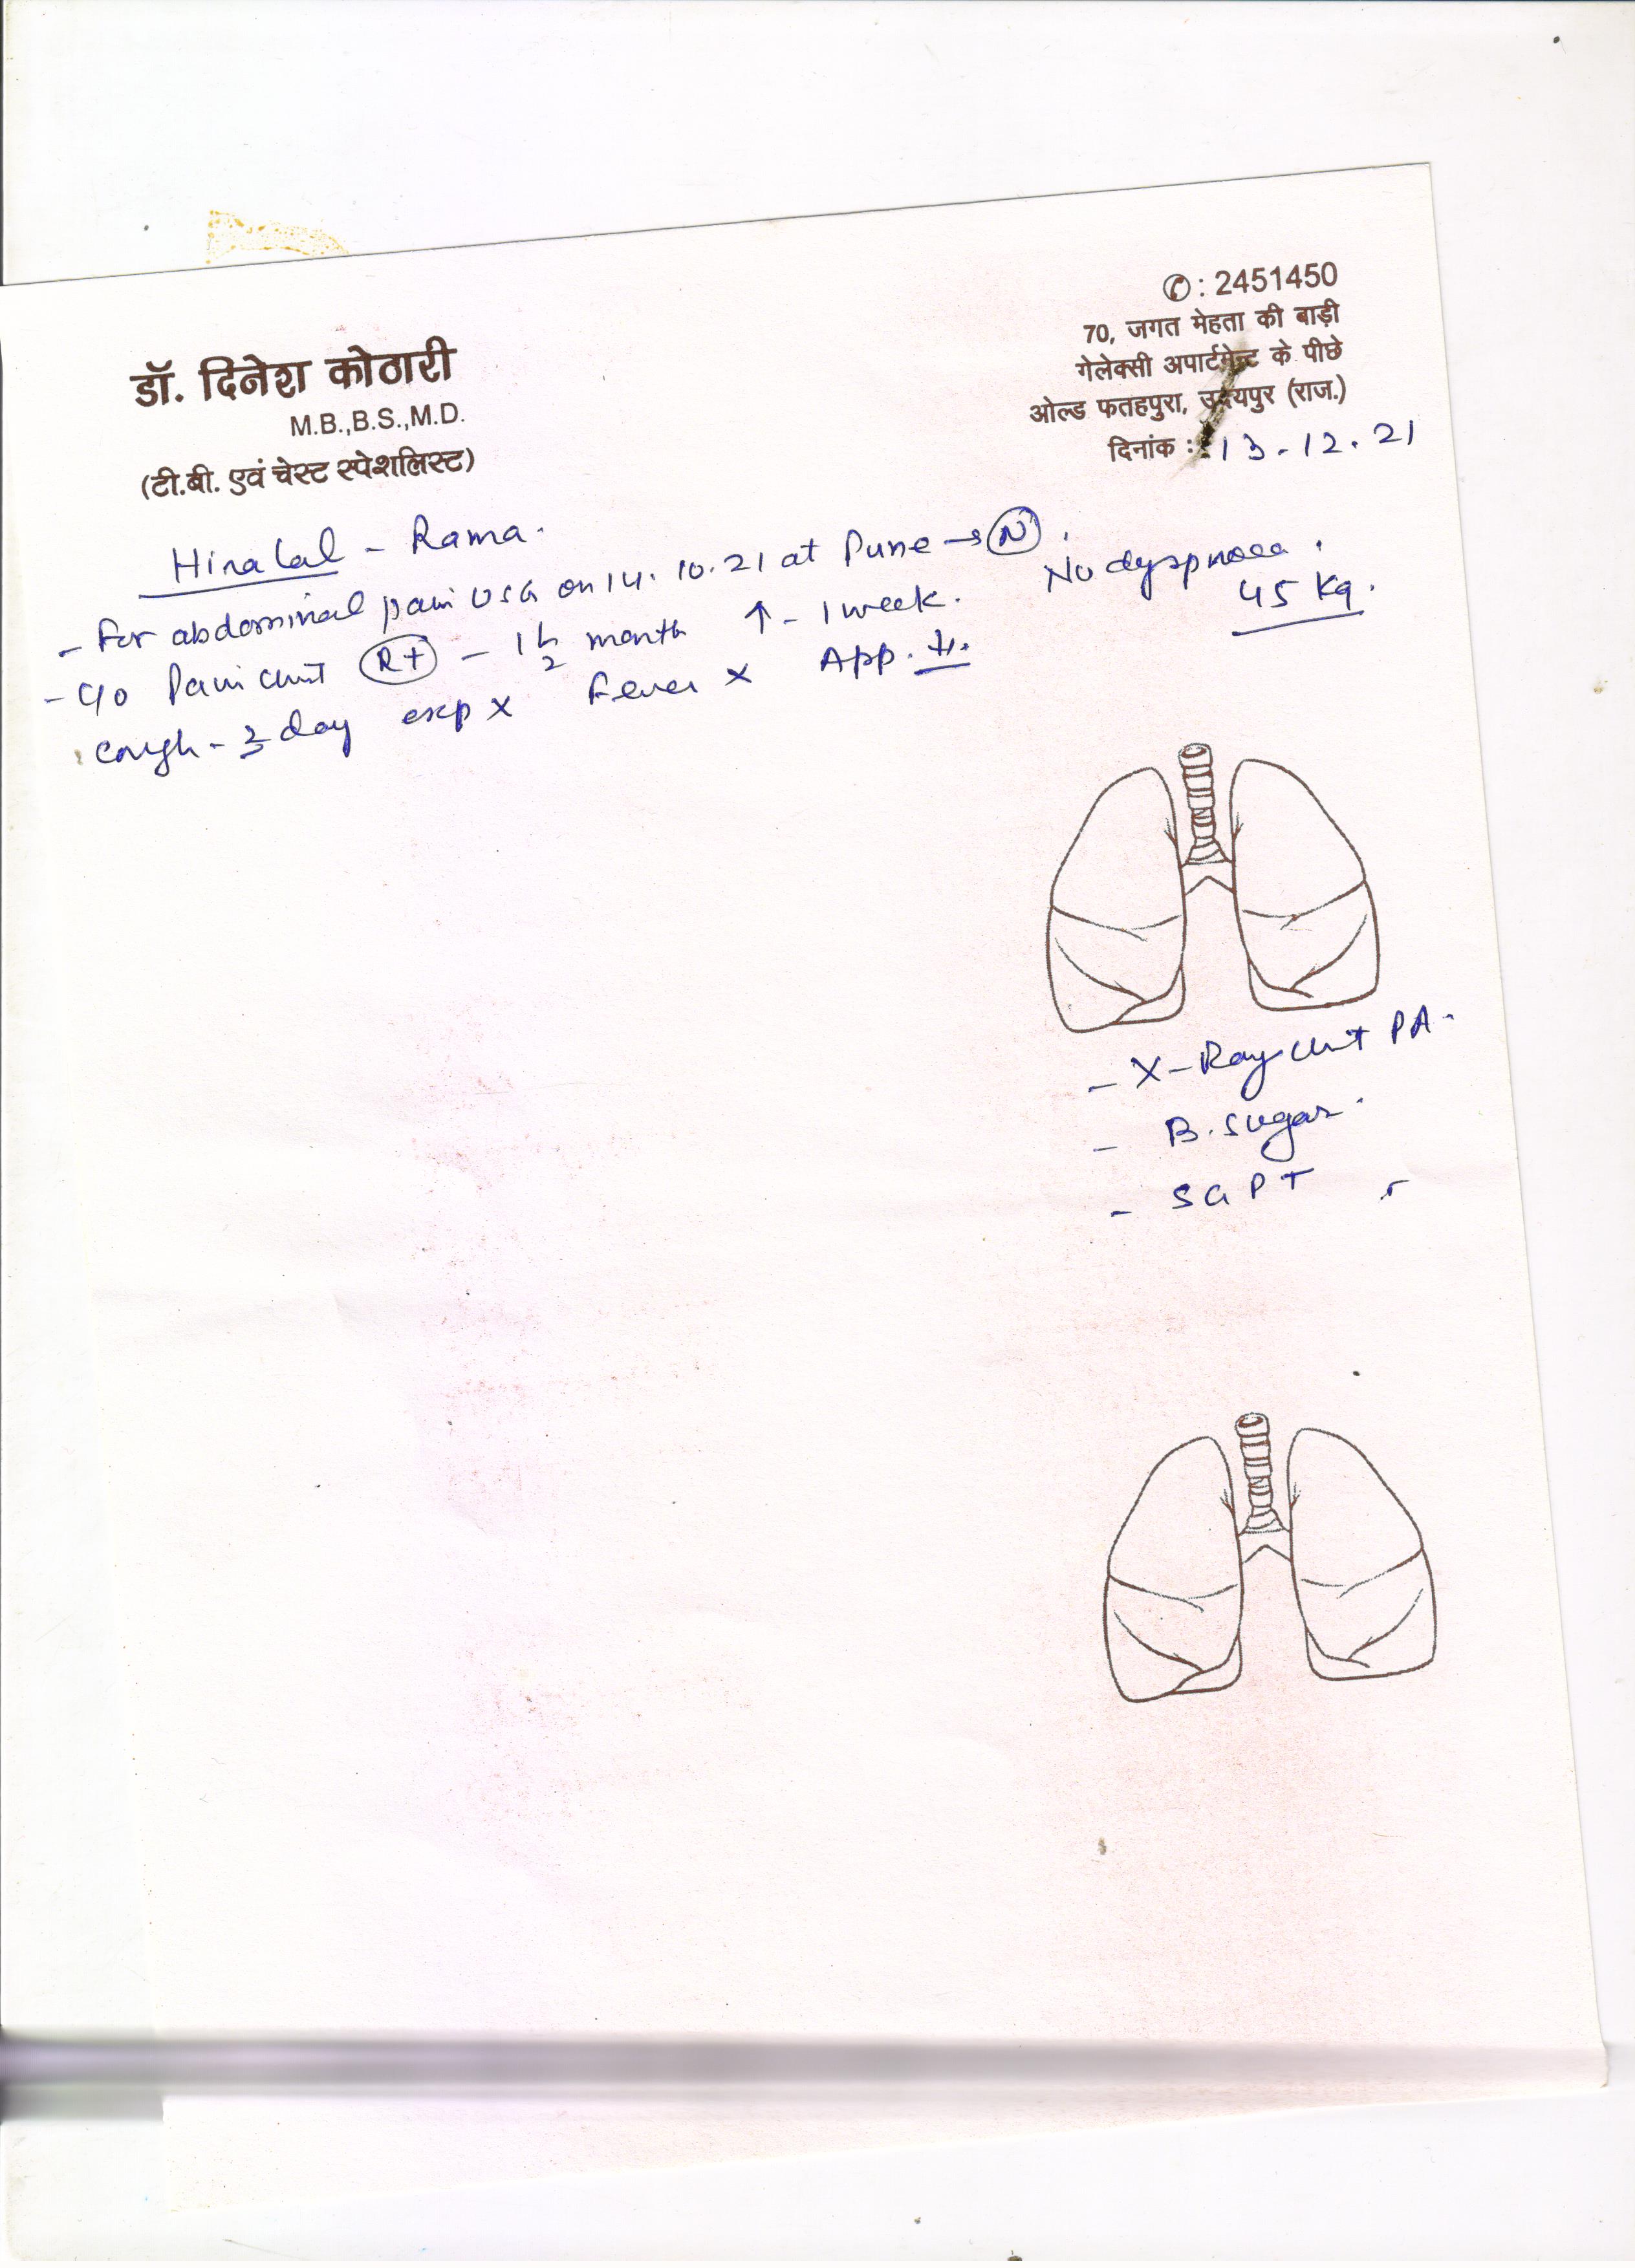 ✆: 2451450
70, जगत मेहता की बाड़ी
गेलेक्सी अपार्टमेन्ट के पीछे
ओल्ड फतहपुरा, उदयपुर (राज.)
दिनांक : 13.12.21
डॉ. दिनेश कोठारी
M.B.,B.S.,M.D.
(टी.बी. एवं चेस्ट स्पेशलिस्ट)
Hiralal - Rama.
- For abdominal pain USG on 14.10.21 at Pune → N. No dyspnoea.
- c/o Pain chest Rt - 1 1/2 month ↑ - 1 week. 45 Kg.
cough - day exp x Fever x App.
- X-Ray chest PA.
- B. Sugar.
- SGPT